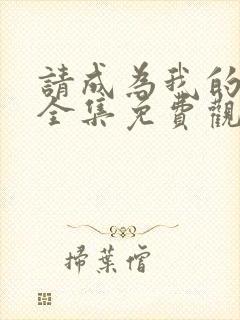 請成為我的
全集免費觀
掃葉僧